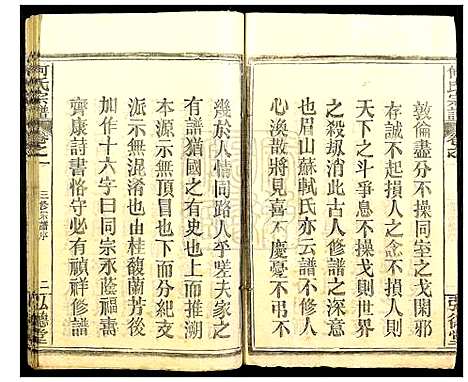 何氏宗譜
敦倫盡分不操同室之戈閑邪
存誠不起損人之念不損人則
天下之斗爭息不操戈則世界
之殺刼消此古人修譜之深意
也眉山蘇軾氏亦云譜不修人
心渙故將見喜不慶憂不弔不
幾於人情同路人乎嗟夫家之
有譜猶國之有史也上而推溯
本源示無頂冒也下而分紀支
派示無混淆也由桂馥蘭芳後
加作十六字曰同宗永蔭福壽
齊康詩書恪守必有禎祥修譜
何氏宗譜
三修宗譜序
二